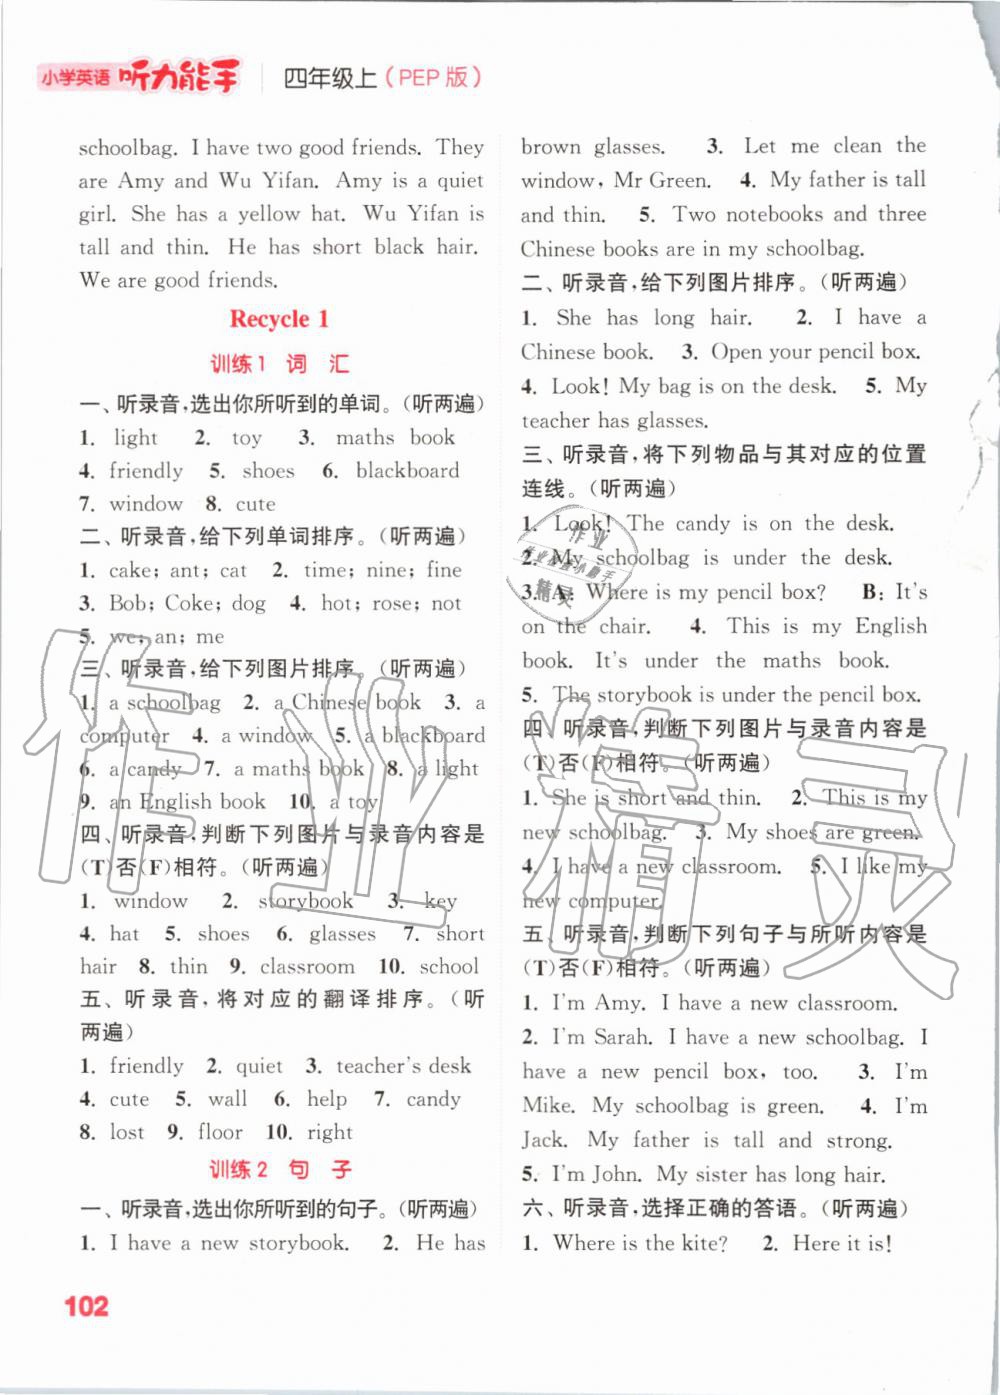 小学英语 听力能手 四年级上(PEP版)
schoolbag. I have two good friends. They
are Amy and Wu Yifan. Amy is a quiet
girl. She has a yellow hat. Wu Yifan is
tall and thin. He has short black hair.
We are good friends.
Recycle 1
训练1 词 汇
一、听录音,选出你所听到的单词。(听两遍)
1. light 2. toy 3. maths book
4. friendly 5. shoes 6. blackboard
7. window 8. cute
二、听录音,给下列单词排序。(听两遍)
1. cake; ant; cat 2. time; nine; fine
3. Bob; Coke; dog 4. hot; rose; not
5. we; an; me
三、听录音,给下列图片排序。(听两遍)
1. a schoolbag 2. a Chinese book 3. a
computer 4. a window 5. a blackboard
6. a candy 7. a maths book 8. a light
9. an English book 10. a toy
四、听录音,判断下列图片与录音内容是
(T)否(F)相符。(听两遍)
1. window 2. storybook 3. key
4. hat 5. shoes 6. glasses 7. short
hair 8. thin 9. classroom 10. school
五、听录音,将对应的翻译排序。(听
两遍)
1. friendly 2. quiet 3. teacher's desk
4. cute 5. wall 6. help 7. candy
8. lost 9. floor 10. right
训练2 句 子
一、听录音,选出你所听到的句子。(听两遍)
1. I have a new storybook. 2. He has
brown glasses. 3. Let me clean the
window, Mr Green. 4. My father is tall
and thin. 5. Two notebooks and three
Chinese books are in my schoolbag.
二、听录音,给下列图片排序。(听两遍)
1. She has long hair. 2. I have a
Chinese book. 3. Open your pencil box.
4. Look! My bag is on the desk. 5. My
teacher has glasses.
三、听录音,将下列物品与其对应的位置
连线。(听两遍)
1. Look! The candy is on the desk.
2. My schoolbag is under the desk.
3. A: Where is my pencil box? B: It's
on the chair. 4. This is my English
book. It's under the maths book.
5. The storybook is under the pencil box.
四、听录音,判断下列图片与录音内容是
(T)否(F)相符。(听两遍)
1. She is short and thin. 2. This is my
new schoolbag. 3. My shoes are green.
4. I have a new classroom. 5. I like my
new computer.
五、听录音,判断下列句子与所听内容是
(T)否(F)相符。(听两遍)
1. I'm Amy. I have a new classroom.
2. I'm Sarah. I have a new schoolbag. I
have a new pencil box, too. 3. I'm
Mike. My schoolbag is green. 4. I'm
Jack. My father is tall and strong.
5. I'm John. My sister has long hair.
六、听录音,选择正确的答语。(听两遍)
1. Where is the kite? 2. Here it is!
102
作业精灵
作业
精灵